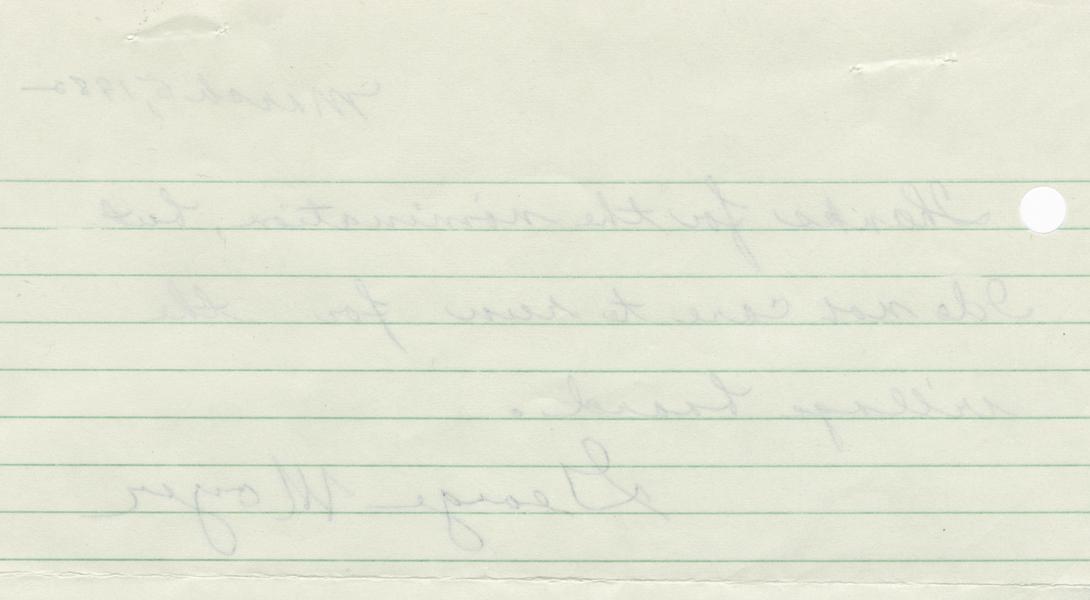 March 5, 1980
Thanks for the nomination, but
I do not care to run for the
village board.
George Moyer